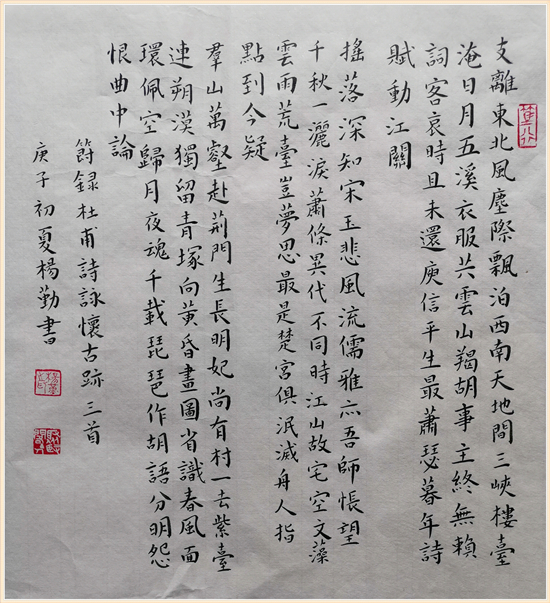 支離東北風塵際飄泊西南天地間三峽樓臺
淹日月五溪衣服共雲山羯胡事主終無賴
詞客哀時且未還庾信平生最蕭瑟暮年詩
賦動江關
搖落深知宋玉悲風流儒雅亦吾師悵望
千秋一灑淚蕭條異代不同時江山故宅空文藻
雲雨荒臺豈夢思最是楚宮俱泯滅舟人指
點到今疑
羣山萬壑赴荊門生長明妃尚有村一去紫臺
連朔漠獨留青塚向黃昏畫圖省識春風面
環佩空歸月夜魂千載琵琶作胡語分明怨
恨曲中論
節録杜甫詩詠懷古跡三首
庚子初夏楊勤書